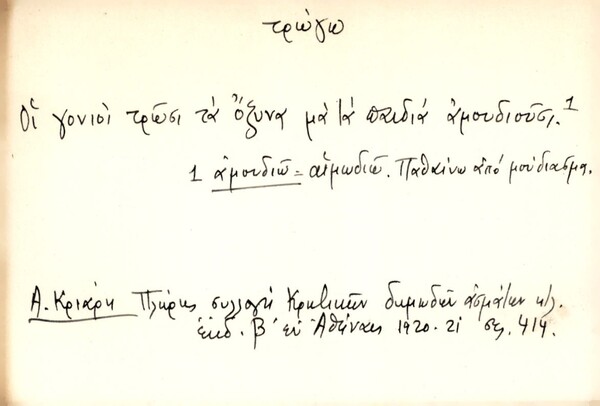 τρώγω
Οἱ γονιοὶ τρῶσι τὰ ὄξυνα μὰ τὰ παιδιὰ ἀμουδιοῦσι.¹
1 ἀμουδιῶ = αἱμωδιῶ. Παθαίνω ἀπό μούδιασμα.
Α. Κριάρη Πλήρης συλλογή Κρητικῶν δημωδῶν ᾀσμάτων κτλ.
ἐκδ. β´ ἐν Ἀθήναις 1920-21 σελ. 414.